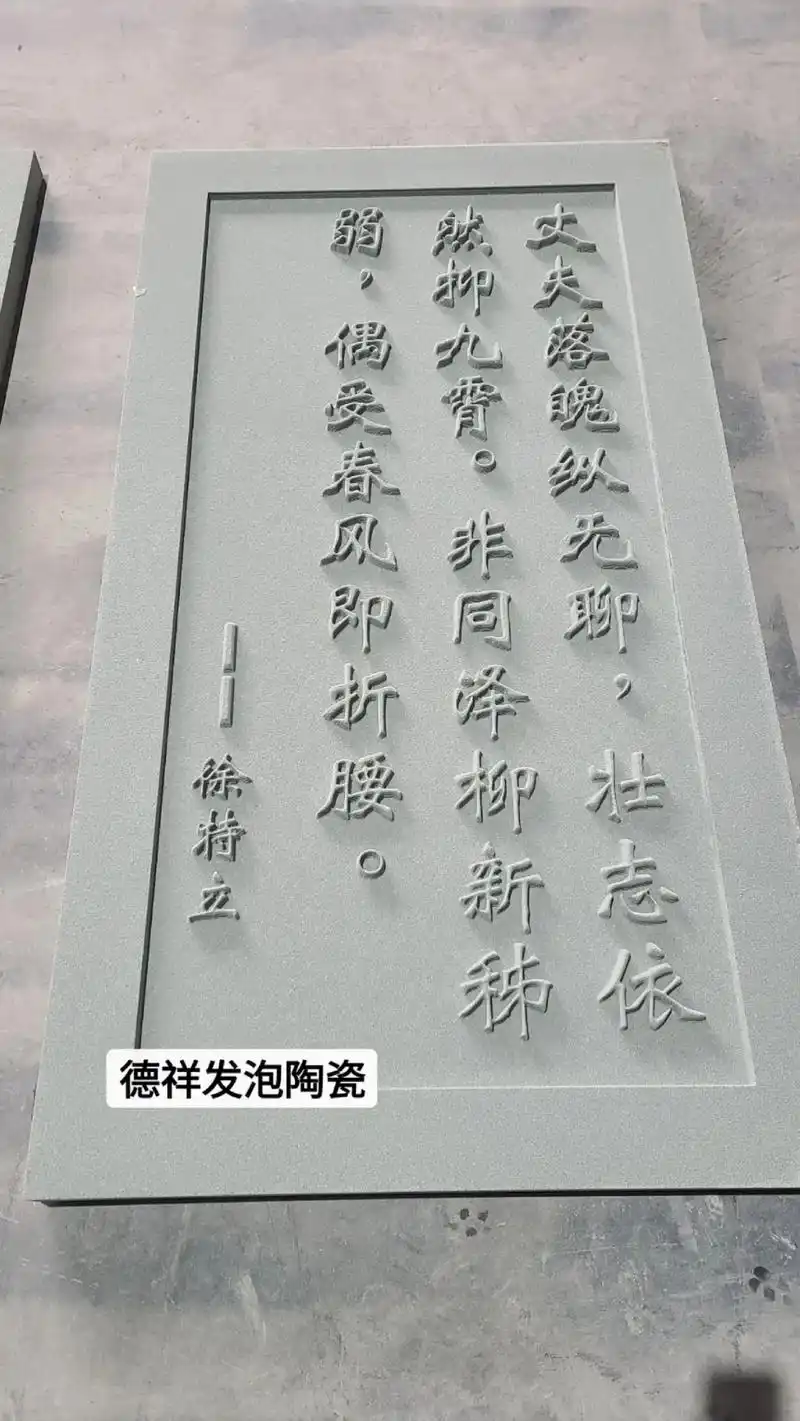 丈夫落魄纵无聊，壮志依
然抑九霄。非同泽柳新稊
弱，偶受春风即折腰。
——徐特立
德祥发泡陶瓷